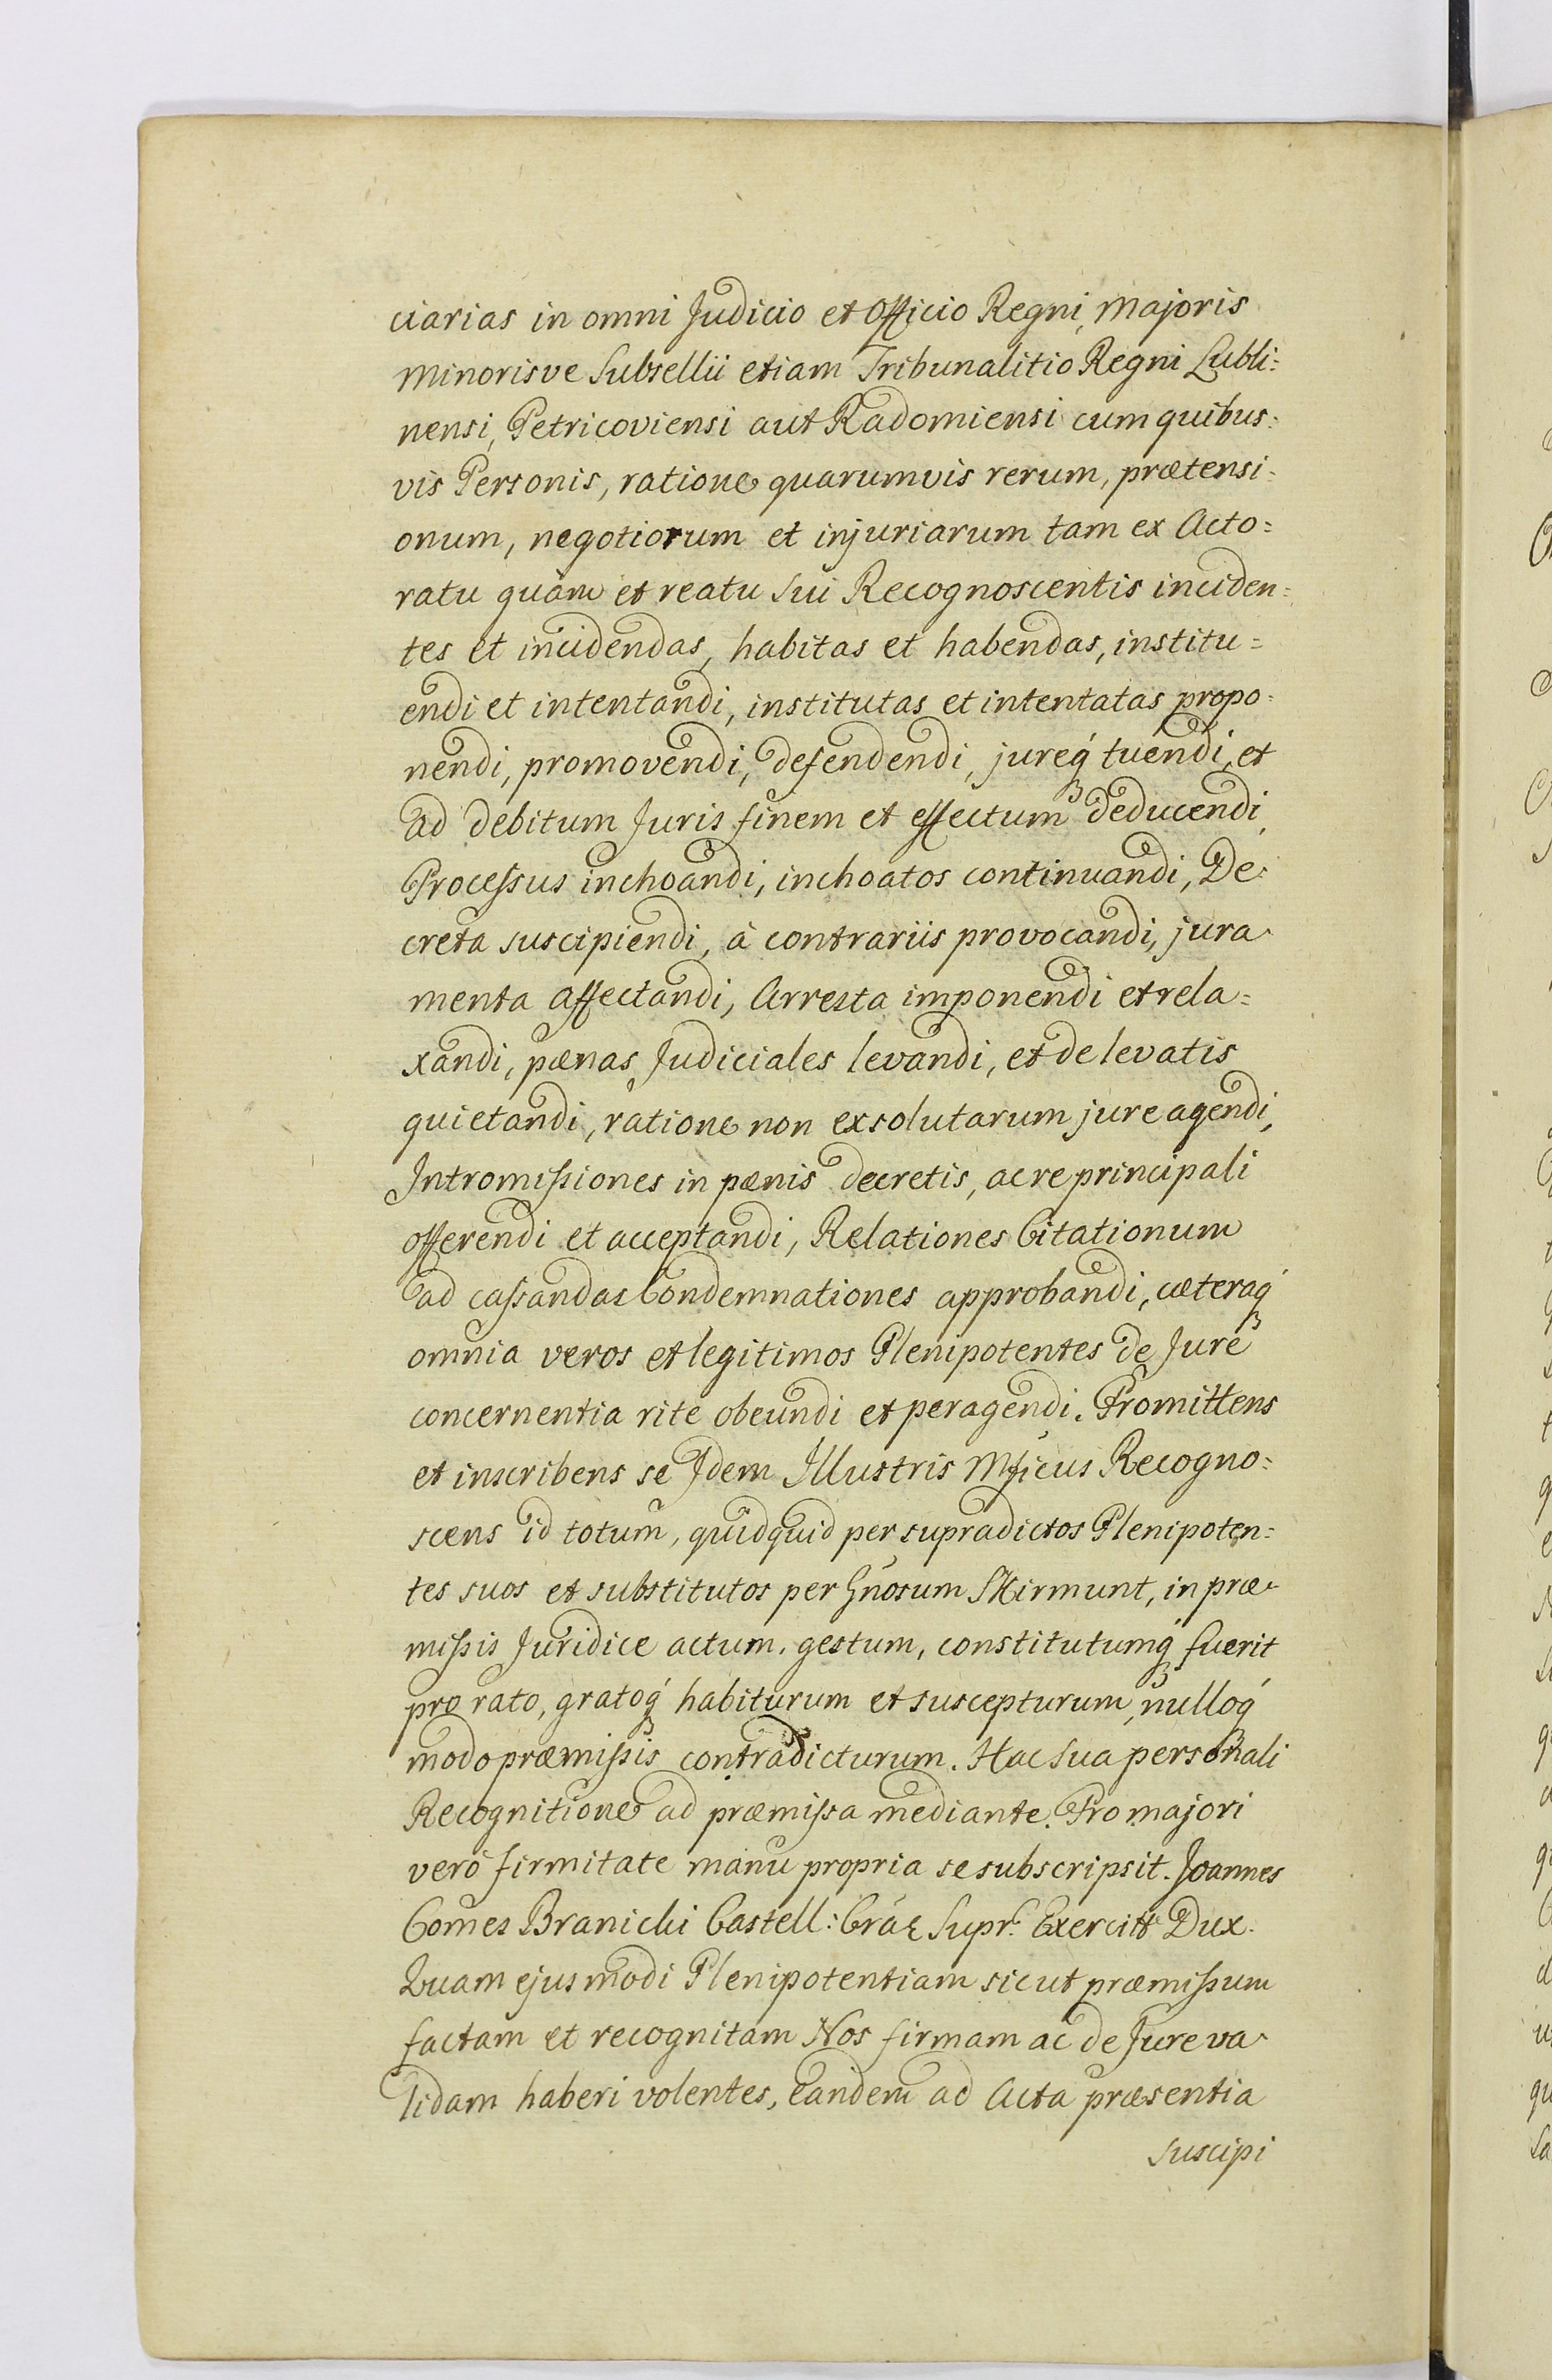 ciarias in omni Judicio et Officio Regni, Majoris
Minorisve Subsellii etiam Tribunalitio Regni Lubli=
nensi, Petricoviensi aut Radomiensi cum quibus=
vis Personis, ratione quarumvis rerum, prætensi=
onum, negotiorum et injuriarum tam ex Acto=
ratu quàm et reatu Sui Recognoscentis inciden=
tes et incidendas, habitas et habendas, institu=
endi et intentandi, institutas et intentatas propo=
nendi, promovendi, defendendi, jureq́ʒ tuendi, et
ad debitum Juris finem et effectum deducendi,
Processus inchoandi, inchoatos continuandi, De=
creta suscipiendi, à contrariis provocandi, jura=
menta affectandi, Arresta imponendi et rela=
xandi, pænas Judiciales levandi, et de levatis
quietandi, ratione non exsolutarum jure agendi,
Intromissiones in pænis decretis, ac re principali
offerendi et acceptandi, Relationes Citationum
ad cassandas Condemnationes approbandi, cæteraq́ʒ
omnia veros et legitimos Plenipotentes de Jure
concernentia rite obeundi et peragendi. Promittens
et inscribens se Idem Illustris Mficus Recogno=
scens id totum, quidquid per supradictos Plenipoten=
tes suos et substitutos per Gnosum Skirmunt, in præ=
missis Juridice actum, gestum, constitutumq́ʒ fuerit
pro rato, gratoq́ʒ habiturum et suscepturum, nulloq́ʒ
modo præmissis contradicturum. Hac Sua personali
Recognitione ad præmissa mediante. Pro majori
verò firmitate manu propria se subscripsit. Joannes
Comes Branicki Castell: Cráꝫ Supr. Exercitt Dux.
Quam ejusmodi Plenipotentiam sicut præmissum
factam et recognitam Nos firmam ac de Jure va=
lidam haberi volentes, Eandem ad Acta præsentia
suscipi